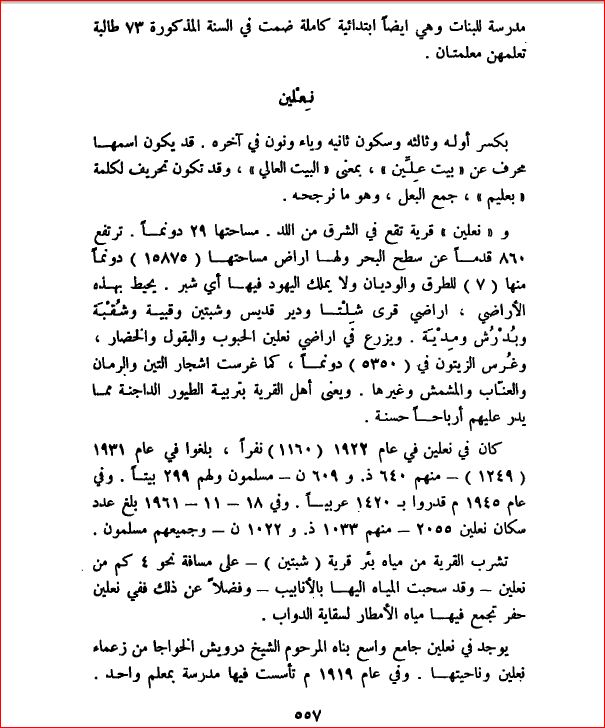 مدرسة للبنات وهي ايضاً ابتدائية كاملة ضمت في السنة المذكورة ٧٣ طالبة
تعلمهن معلمتان .
نِعْلين
بكسر أوله وثالثه وسكون ثانيه وياء ونون في آخره . قد يكون اسمها
محرف عن « بيت عِلِّين » ، بمعنى « البيت العالي » ، وقد تكون تحريف لكلمة
« بعليم » ، جمع البعل ، وهو ما نرجحه .
و « نعلين » قرية تقع في الشرق من اللد . مساحتها ٢٩ دونماً . ترتفع
٨٦٠ قدماً عن سطح البحر ولها اراض مساحتها ( ١٥٨٧٥ ) دونماً
منها ( ٧ ) للطرق والوديان ولا يملك اليهود فيها أي شبر . يحيط بهذه
الأراضي ، اراضي قرى شِلْتا ودير قديس وشبتين وقبية وشُقْبَة
وبُدْرُش ومِدْيَة . ويزرع في اراضي نعلين الحبوب والبقول والخضار ،
وغُرس الزيتون في ( ٥٣٥٠ ) دونماً ، كما غرست اشجار التين والرمان
والعنّاب والمشمش وغيرها . ويعنى أهل القرية بتربية الطيور الداجنة مما
يدر عليهم أرباحاً حسنة .
كان في نعلين في عام ١٩٢٢ (١١٦٠) نفراً ، بلغوا في عام ١٩٣١
( ١٢٤٩ ) – منهم ٦٤٠ ذ. و ٦٠٩ ن – مسلمون ولهم ٢٩٩ بيتاً . وفي
عام ١٩٤٥ م قدروا بـ ١٤٢٠ عربياً . وفي ١٨ – ١١ – ١٩٦١ بلغ عدد
سكان نعلين ٢٠٥٥ – منهم ١٠٣٣ ذ. و ١٠٢٢ ن – وجميعهم مسلمون .
تشرب القرية من مياه بئر قرية ( شبتين ) – على مسافة نحو ٤ كم من
نعلين – وقد سحبت المياه اليها بالأنابيب – وفضلاً عن ذلك ففي نعلين
حفر تجمع فيها مياه الأمطار لسقاية الدواب .
يوجد في نعلين جامع واسع بناه المرحوم الشيخ درويش الخواجا من زعماء
نعلين وناحيتها . وفي عام ١٩١٩ م تأسست فيها مدرسة بمعلم واحد .
٥٥٧